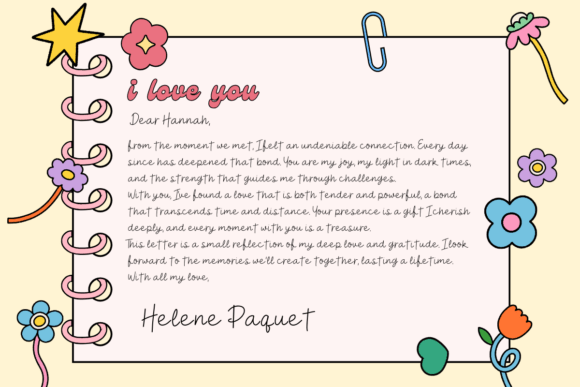 i love you
Dear Hannah,
From the moment we met, I felt an undeniable connection. Every day
since has deepened that bond. You are my joy, my light in dark times,
and the strength that guides me through challenges.
With you, I've found a love that is both tender and powerful, a bond
that transcends time and distance. Your presence is a gift I cherish
deeply, and every moment with you is a treasure.
This letter is a small reflection of my deep love and gratitude. I look
forward to the memories we'll create together, lasting a lifetime.
With all my love,
Helene Paquet